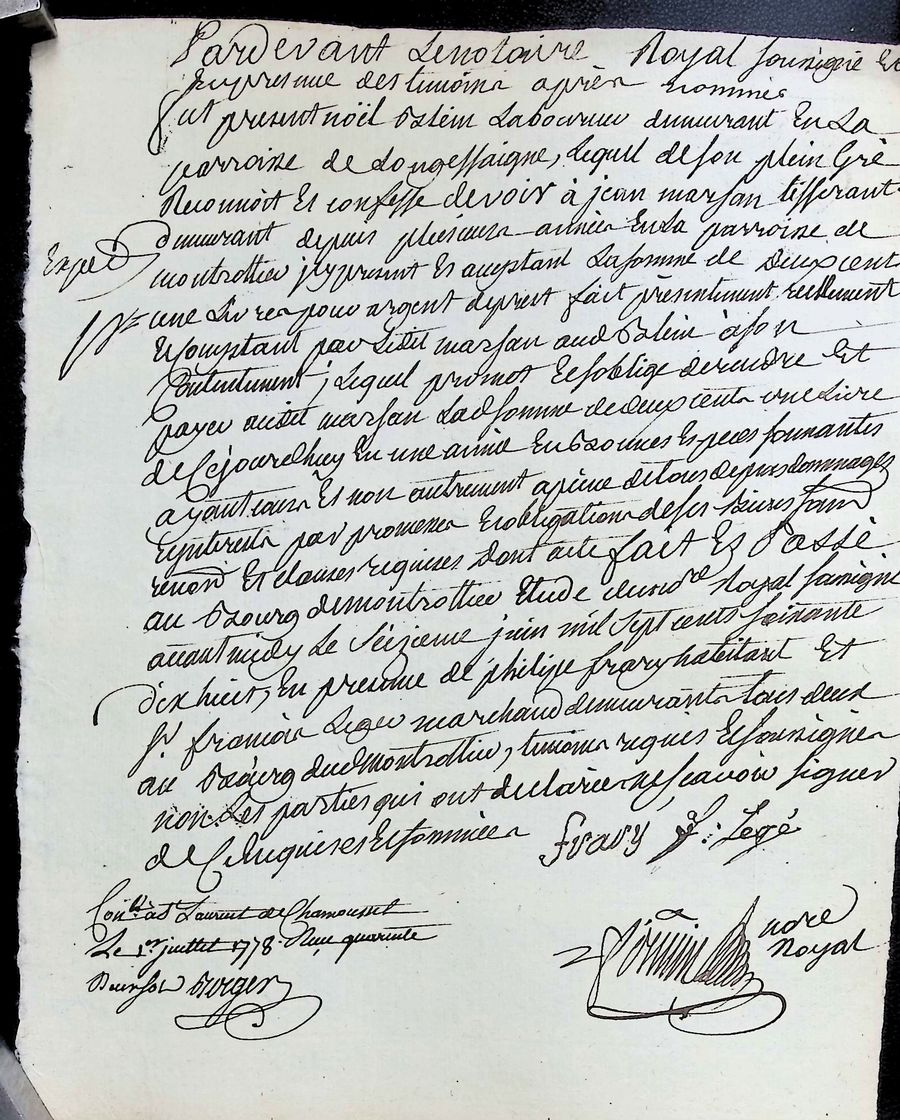 Pardevant Le notaire Royal soussigné Et
En presence des temoins après nommés
fut present noël Blein Laboureur demeurant En La
parroisse de Longessaigne, lequel de son plein Gré
Reconnoit Et confesse devoir à jean marsan tisserant
demeurant depuis plusieurs années En La parroise de
Exped
montrottier jcy present Et acceptant La somme de deux cent
une Livres pour argent de prest fait présentement reellement
Et comptant par Ledit marsan aud Blein à son
Contentement, Lequel promet Et soblige de rendre Et
payer audit marsan Lad somme de deux cents une Livre
de Cejourdhuy En une année En Bonnes Especes sonnantes
ayant cours Et non autrement a peine de tous depens dommages
Et interests par promesses Et obligations de ses Biens
renon Et clauses requises dont acte fait Et Passé
au Bourg de montrottier Etude du no.re Royal soussigné
avant midy Le Seizieme juin mil Sept cents soixante
dix huit, En presence de philipe frary habitant Et
Sr. francois Legé marchand demeurants tous deux
au Bourg dud montrottier, temoins requis Et soussignes
non Les parties qui ont declarées ne scavoir signer
de Ce Enquises Et sommées
frary f: Legé
Con.lé à St Laurent de Chamousset
Le 1er juillet 1778 Reçu quarente
Berger
nore
Royal